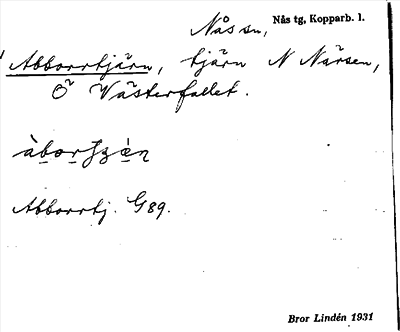 Nås sn, Nås tg, Kopparb. l.
Abborrtjärn, tjärn N Närsen,
Ö Västerfallet.
Abborrtj. G89.
Bror Lindén 1931